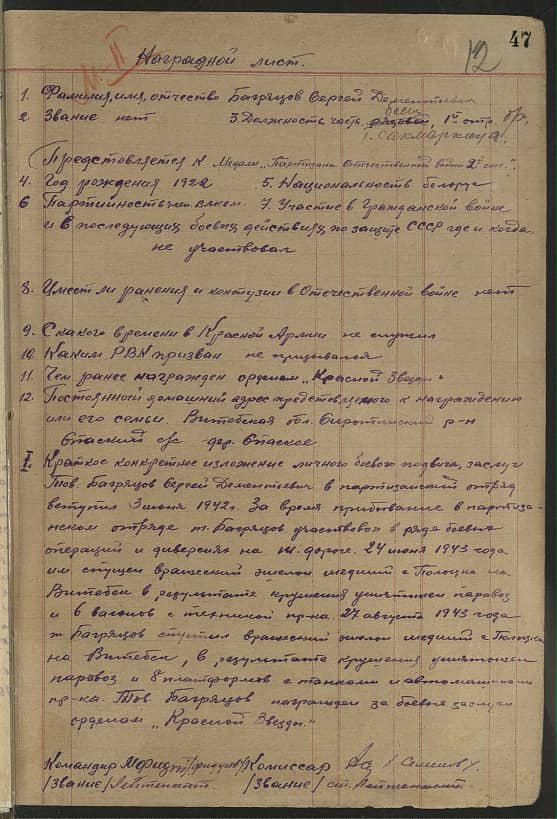 47
12
Наградной лист.
1. Фамилия, имя, отчество Багряцов Сергей Дементьевич
2. Звание нет 3. Должность часть, боец 1й отр. бр.
Представляется к Медали „Партизана Отечественной войны 2й ст."
4. Год рождения 1922 5. Национальность белорус
6 Партийность чл. влксм. 7. Участие в Гражданской войне
и в последующих боевых действиях по защите СССР где и когда
не участвовал
8. Имеет ли ранения и контузии в Отечественной войне нет
9. С какого времени в Красной Армии не служил
10. Каким РВК призван не призывался
11. Чем ранее награжден орденом „Красной Звезды"
12. Постоянный домашний адрес представляемого к награждению
или его семьи. Витебская обл. Сиротинский р-н
Спаский с/с дер. Спаское
I. Краткое конкретное изложение личного боевого подвига, заслуг
Тов. Багряцов Сергей Дементьевич в партизанский отряд
вступил 3 июня 1942г. За время прибывание в партиза-
нском отряде т. Багряцов участвовал в ряде боевых
операций и диверсиях на ж. дороге. 24 июня 1943 года
им спущен вражеский эшелон шедший с Полоцка на
Витебск в результате крушения уничтожен паровоз
и 6 вагонов с техникой пр-ка. 27 августа 1943 года
т. Багряцов спустил вражеский эшелон шедший с Полоцка
на Витебск, в результате крушения уничтожен
паровоз и 8 платформов с танками и автомашинами
пр-ка. Тов. Багряцов награжден за боевые заслуги
орденом „Красной Звезды."
Командир Комиссар
/Звание/ Лейтенант /Звание/ ст. Лейтенант